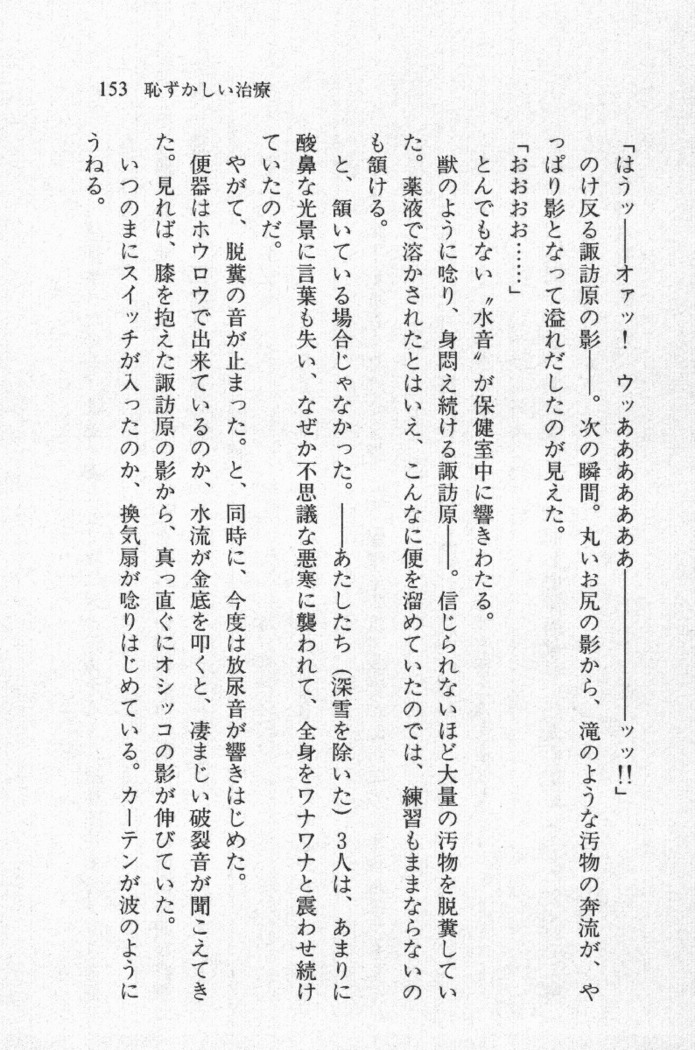 153 恥ずかしい治療
「はうッ――オァッ! ウッあああああああ――――――ッッ!!」
のけ反る諏訪原の影――。次の瞬間。丸いお尻の影から、滝のような汚物の奔流が、や
っぱり影となって溢れだしたのが見えた。
「おおおお……」
とんでもない〝水音〟が保健室中に響きわたる。
獣のように唸り、身悶え続ける諏訪原――。信じられないほど大量の汚物を脱糞してい
た。薬液で溶かされたとはいえ、こんなに便を溜めていたのでは、練習もままならないの
も頷ける。
と、頷いている場合じゃなかった。――あたしたち(深雪を除いた)3人は、あまりに
酸鼻な光景に言葉も失い、なぜか不思議な悪寒に襲われて、全身をワナワナと震わせ続け
ていたのだ。
やがて、脱糞の音が止まった。と、同時に、今度は放尿音が響きはじめた。
便器はホウロウで出来ているのか、水流が金底を叩くと、凄まじい破裂音が聞こえてき
た。見れば、膝を抱えた諏訪原の影から、真っ直ぐにオシッコの影が伸びていた。
いつのまにスイッチが入ったのか、換気扇が唸りはじめている。カーテンが波のように
うねる。